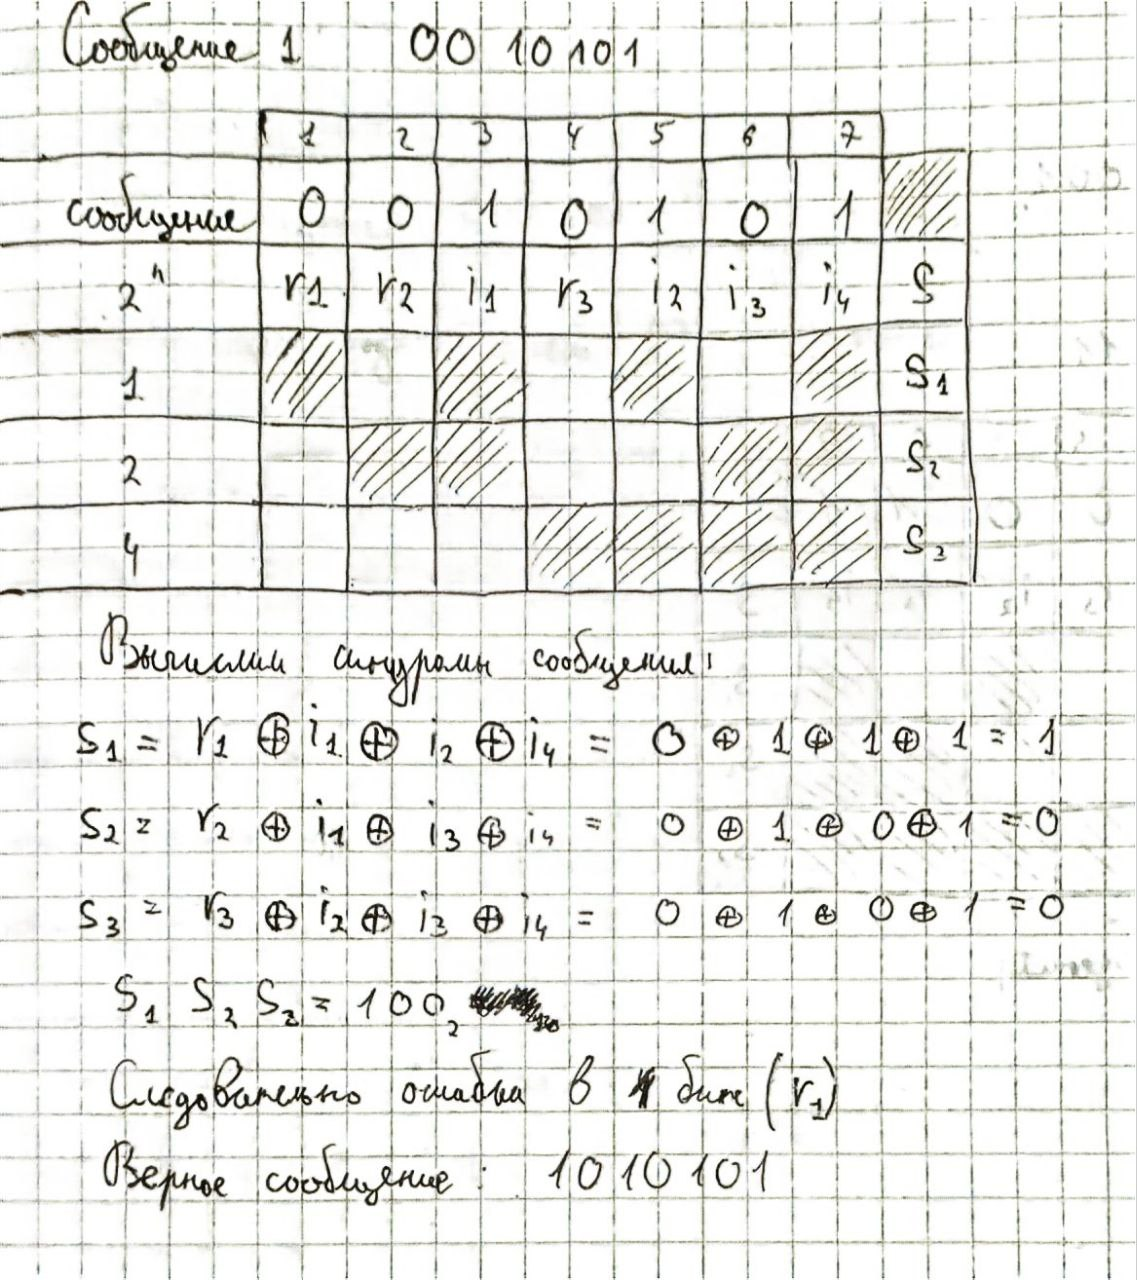 Сообщение 1 00 10 101
1 2 3 4 5 6 7
сообщение 0 0 1 0 1 0 1
2ⁿ r1 r2 i1 r3 i2 i3 i4 S
1 S1
2 S2
4 S3
Вычислим синдромы сообщения:
S1 = r1 ⊕ i1 ⊕ i2 ⊕ i4 = 0 ⊕ 1 ⊕ 1 ⊕ 1 = 1
S2 = r2 ⊕ i1 ⊕ i3 ⊕ i4 = 0 ⊕ 1 ⊕ 0 ⊕ 1 = 0
S3 = r3 ⊕ i2 ⊕ i3 ⊕ i4 = 0 ⊕ 1 ⊕ 0 ⊕ 1 = 0
S1 S2 S3 = 100₂
Следовательно ошибка в 1 бите (r1)
Верное сообщение: 1010101